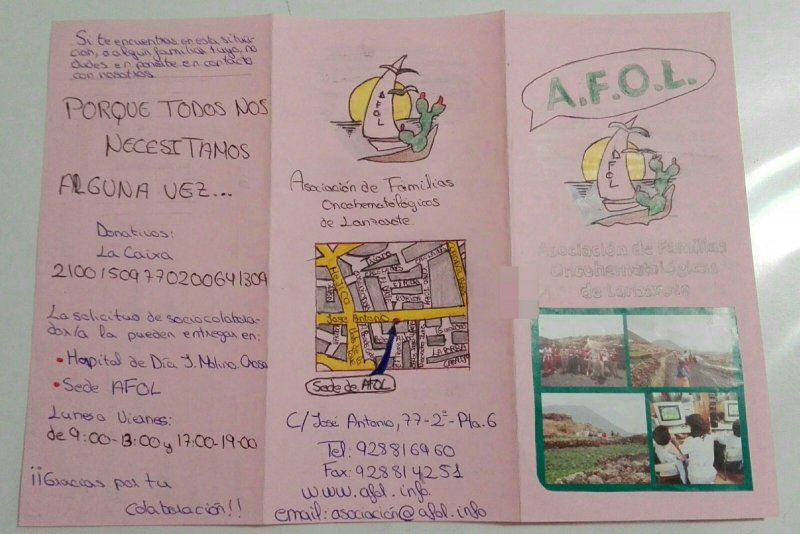 Si te encuentras en esta situa-
ción, o algún familiar tuyo, no
dudes en ponerte en contacto
con nosotros
PORQUE TODOS NOS
NECESITAMOS
ALGUNA VEZ...
Donativos:
La Caixa
21001509770200641309
La solicitud de socio colabora-
dor/a la pueden entregar en:
• Hospital de Día J. Molina Orosa
• Sede AFOL
Lunes a Viernes:
de 9:00-13:00 y 17:00-19:00
¡¡Gracias por tu
colaboración!!
AFOL
Asociación de Familias
Oncohematológicas
de Lanzarote.
MEJICO
José Antonio
LA BARRA
Sede de AFOL
C/José Antonio, 77-2º-Pta.6
Tel: 928816960
Fax: 928814251
www.afol.info.
email: asociación@afol.info
A.F.O.L.
AFOL
Asociación de Familias
Oncohematológicas
de Lanzarote